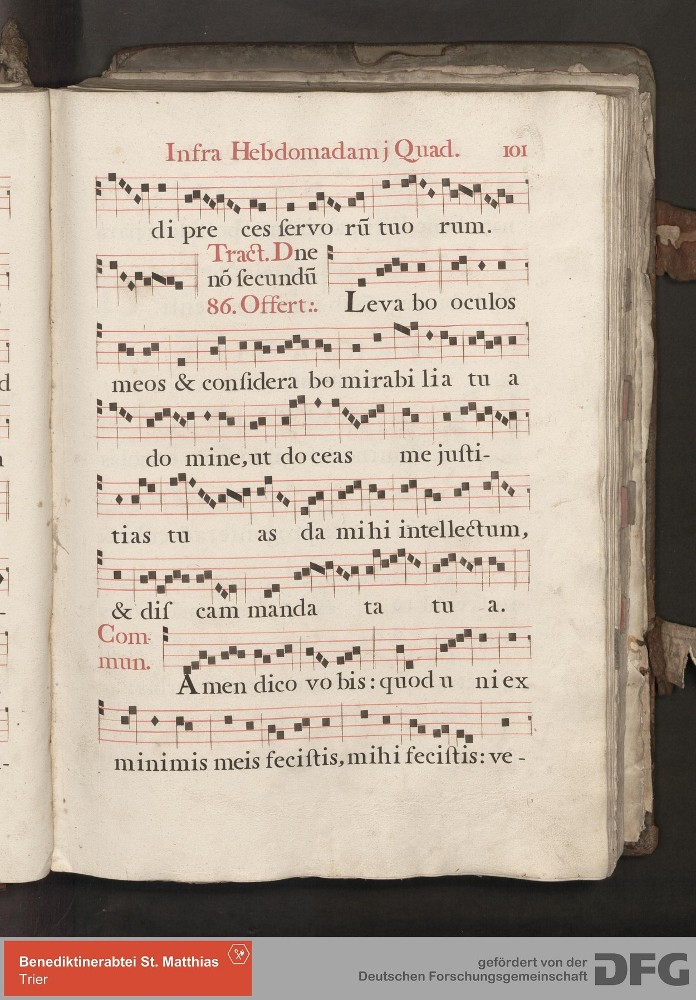 Infra Hebdomadam j Quad. 101
di pre ces ſervo rũ tuo rum.
Tract. Dne
nõ ſecundũ
86. Offert:. Leva bo oculos
meos & conſidera bo mirabi lia tu a
do mine, ut do ceas me juſti-
tias tu as da mihi intellectum,
& diſ cam manda ta tu a.
Com-
mun.
Amen dico vo bis: quod u ni ex
minimis meis feciſtis, mihi feciſtis: ve-
Benediktinerabtei St. Matthias
Trier
gefördert von der
Deutschen Forschungsgemeinschaft DFG